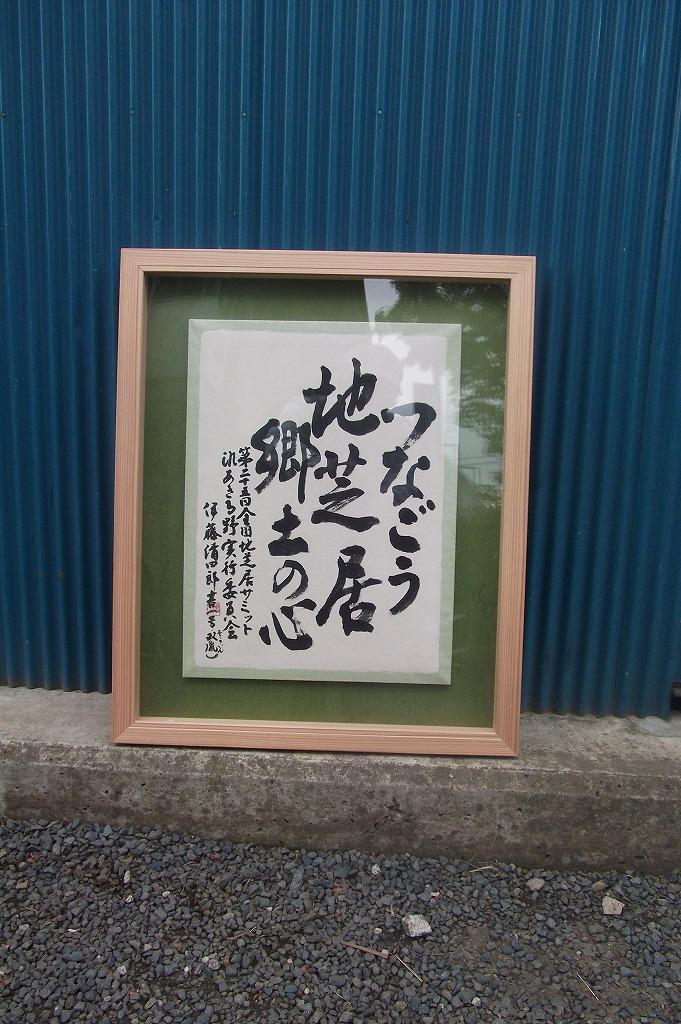 つなごう
地芝居
郷土の心
第二十五回全国地芝居サミット
inあきる野実行委員会
伊藤清四郎書